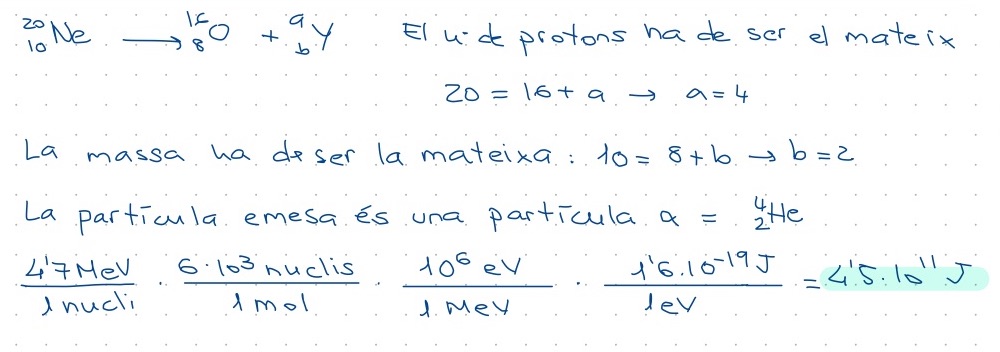 ²⁰₁₀Ne ⟶ ¹⁶₈O + ᵃ_bY El n· de protons ha de ser el mateix
20 = 16 + a → a = 4
La massa ha de ser la mateixa : 10 = 8 + b → b = 2
La partícula emesa és una partícula α = ⁴₂He
4'7 MeV / 1 nucli · 6·10³ nuclis / 1 mol · 10⁶ eV / 1 MeV · 1'6.10⁻¹⁹ J / 1eV = 4'5.10¹¹ J